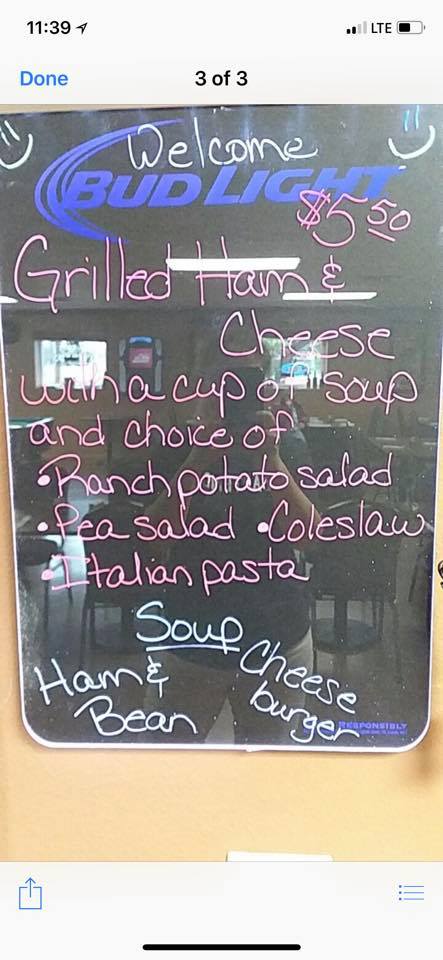 11:39
LTE
Done
3 of 3
Welcome
BUD LIGHT
$5.50
Grilled Ham &
Cheese
with a cup of soup
and choice of
• Ranch potato salad
• Pea salad • Coleslaw
• Italian pasta
Soup
Ham &
Bean
Cheese
burger
RESPONSIBLY